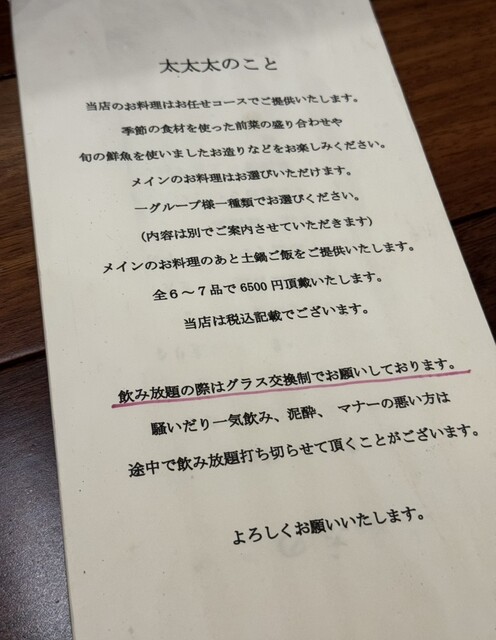 太太太のこと
当店のお料理はお任せコースでご提供いたします。
季節の食材を使った前菜の盛り合わせや
旬の鮮魚を使いましたお造りなどをお楽しみください。
メインのお料理はお選びいただけます。
一グループ様一種類でお選びください。
(内容は別でご案内させていただきます)
メインのお料理のあと土鍋ご飯をご提供いたします。
全６～７品で 6500 円頂戴いたします。
当店は税込記載でございます。
飲み放題の際はグラス交換制でお願いしております。
騒いだり一気飲み、泥酔、 マナーの悪い方は
途中で飲み放題打ち切らせて頂くことがございます。
よろしくお願いいたします。